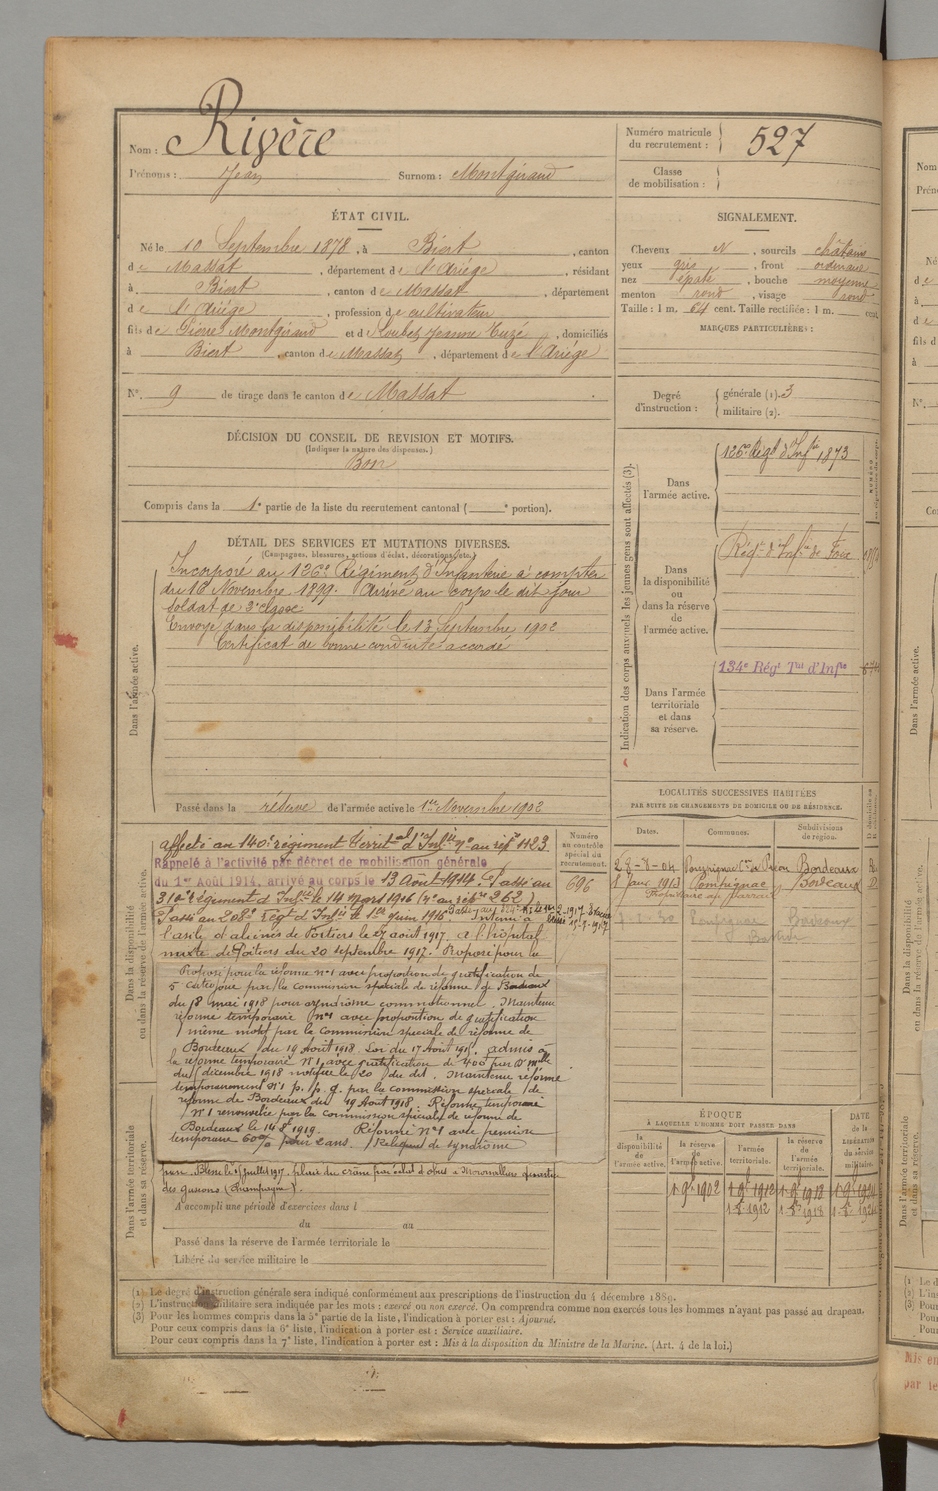 Nom : Rivère
Prénoms : Jean Surnom : Montgiraud
Numéro matricule du recrutement : 527
Classe de mobilisation :
ÉTAT CIVIL.
Né le 10 Septembre 1878, à Biert, canton
de Massat, département de l'Ariège, résidant
à Biert, canton de Massat, département
de l'Ariège, profession de cultivateur
fils de Pierre Montgiraud et de Loubet Jeanne, domiciliés
à Biert, canton de Massat, département de l'Ariège
N°. 9 de tirage dans le canton de Massat
SIGNALEMENT.
Cheveux N, sourcils châtains
yeux gris, front ordinaire
nez épaté, bouche moyenne
menton rond, visage rond
Taille : 1 m. 64 cent. Taille rectifiée : 1 m. cent.
MARQUES PARTICULIÈRES :
Degré d'instruction : générale (1). 3
militaire (2).
DÉCISION DU CONSEIL DE REVISION ET MOTIFS.
(Indiquer la nature des dispenses.)
Bon
Compris dans la 1e partie de la liste du recrutement cantonal ( e portion).
DÉTAIL DES SERVICES ET MUTATIONS DIVERSES.
(Campagnes, blessures, actions d'éclat, décorations, etc.)
Dans l'armée active.
Incorporé au 126e Régiment d'Infanterie à compter
du 16 Novembre 1899. Arrivé au corps le dit jour
Soldat de 2e classe
Envoyé dans la disponibilité le 13 Septembre 1902
Certificat de bonne conduite accordé
Passé dans la réserve de l'armée active le 1er Novembre 1902
Indication des corps auxquels les jeunes gens sont affectés (3).
Dans l'armée active.
126e Régt d'Infie 1873
Dans la disponibilité ou dans la réserve de l'armée active.
Régt d'Infie de Foix
Dans l'armée territoriale et dans sa réserve.
134e Régt Tal d'Infie
LOCALITÉS SUCCESSIVES HABITÉES
PAR SUITE DE CHANGEMENTS DE DOMICILE OU DE RÉSIDENCE.
Dates. Communes. Subdivisions de région.
28-8-04 Bordeaux
1 Janv 1913 Pompignac Bordeaux
Dans la disponibilité ou dans la réserve de l'armée active.
Numéro au contrôle spécial du recrutement.
696
affecté au 140e régiment Territal d'Infie n° au répre 1123
Rappelé à l'activité par décret de mobilisation générale
du 1er Août 1914, arrivé au corps le 13 Août 1914. Passé au
310e Régiment d'Infie le 14 mars 1916
Passé au 208e Régt d'Infie le 1er Juin 1916 Interné à
l'asile d'aliénés de Poitiers le 27 août 1917 à l'hôpital
mixte de Poitiers du 20 septembre 1917. Proposé pour la
Proposé pour la réforme n°1 avec proportion de gratification de
5e catégorie par la commission spéciale de réforme de Bordeaux
du 18 mai 1918 pour syndrôme commotionnel. Maintenu
réforme temporaire n°1 avec proportion de gratification
même motif par la commission spéciale de réforme de
Bordeaux du 19 Août 1918. Loi du 17 Août 1915. admis à
la réforme temporaire N°1, avec gratification de 400
du décembre 1918 notifiée le 20 du dit. Maintenu réformé
temporairement N°1 p. p. g. par la commission spéciale de
réforme de Bordeaux du 19 Août 1918. Réforme temporaire
N°1 renouvelée par la commission spéciale de réforme de
Bordeaux le 14 8bre 1919. Réforme N°1 avec pension
temporaire 60% pour 2 ans. Reliquat de syndrôme
Blessé le juillet 1917. plaie du crâne par éclat d'obus à Mourmelon
(Champagne).
Dans l'armée territoriale et dans sa réserve.
A accompli une période d'exercices dans l
du au
Passé dans la réserve de l'armée territoriale le
Libéré du service militaire le
ÉPOQUE
À LAQUELLE L'HOMME DOIT PASSER DANS
la disponibilité de l'armée active. la réserve de l'armée active. l'armée territoriale. la réserve de l'armée territoriale. DATE de la LIBÉRATION du service militaire.
1. 9bre 1902 1. 9bre 1912 1. 9bre 1918
1. 8bre 1912 1. 8bre 1918
(1) Le degré d'instruction générale sera indiqué conformément aux prescriptions de l'instruction du 4 décembre 1889.
(2) L'instruction militaire sera indiquée par les mots : exercé ou non exercé. On comprendra comme non exercés tous les hommes n'ayant pas passé au drapeau.
(3) Pour les hommes compris dans la 5e partie de la liste, l'indication à porter est : Ajourné.
Pour ceux compris dans la 6e liste, l'indication à porter est : Service auxiliaire.
Pour ceux compris dans la 7e liste, l'indication à porter est : Mis à la disposition du Ministre de la Marine. (Art. 4 de la loi.)